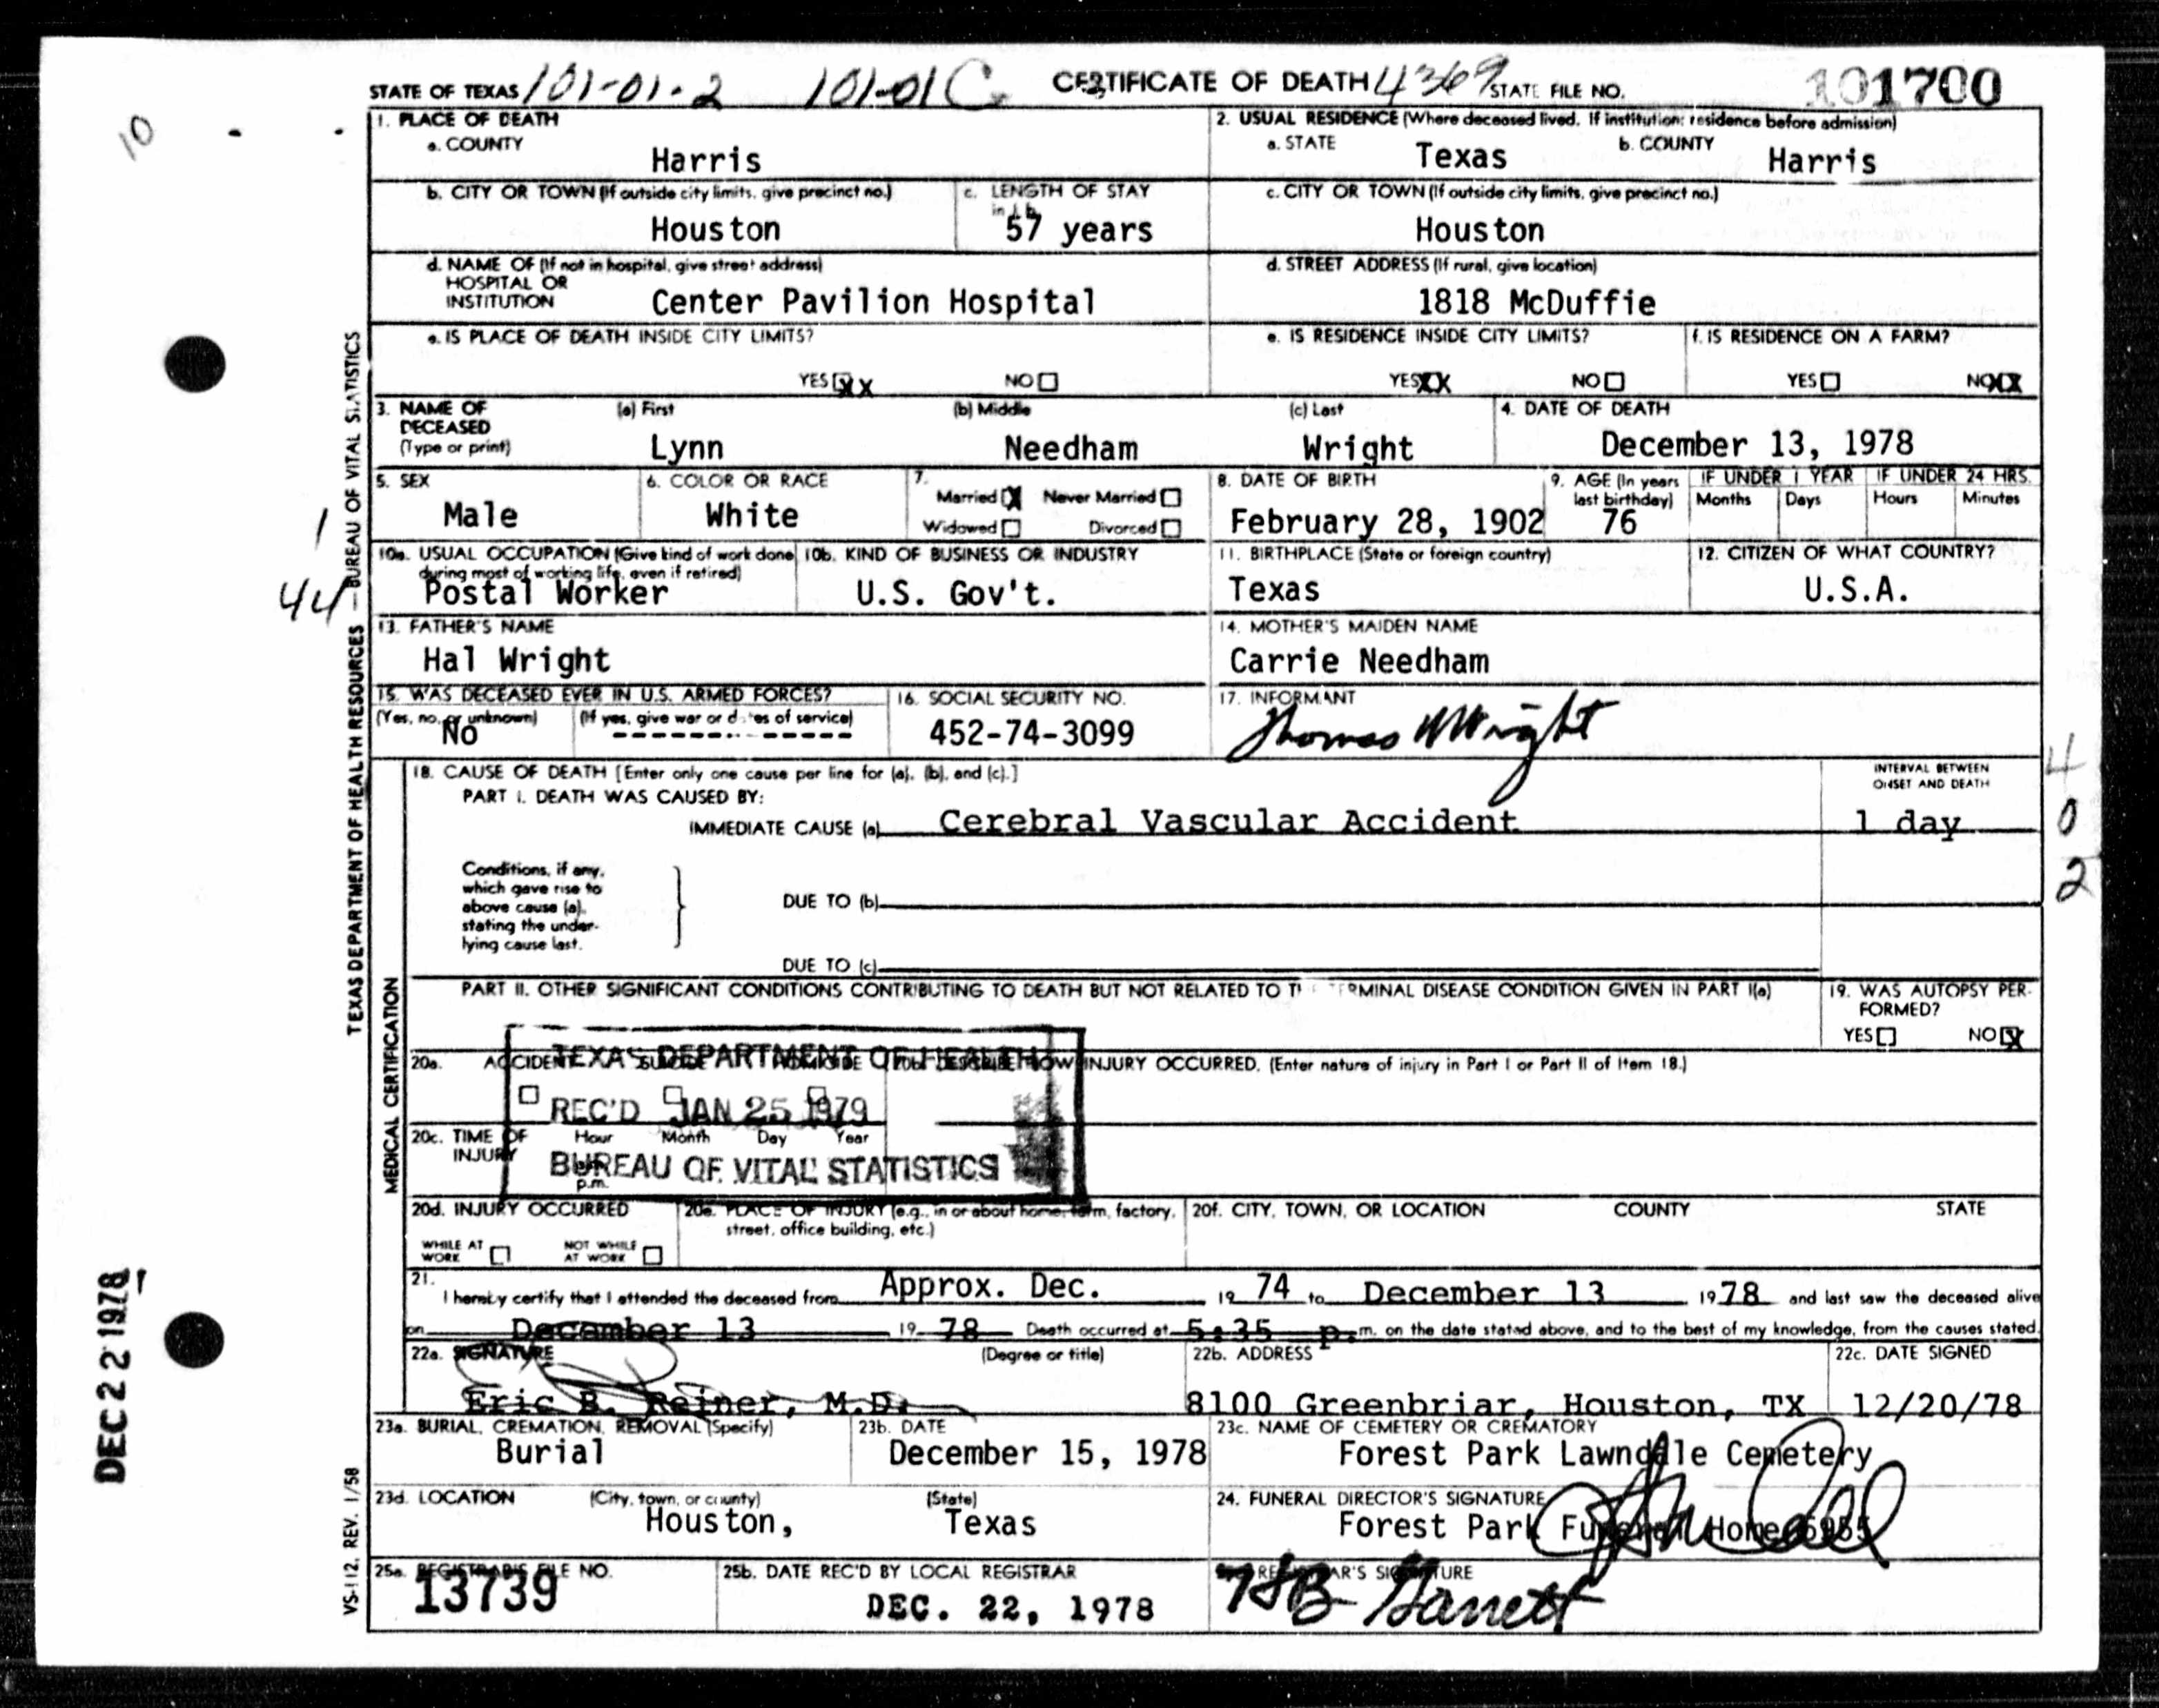 STATE OF TEXAS 101-01-2 101-01C CERTIFICATE OF DEATH 4369 STATE FILE NO. 101700
10
1. PLACE OF DEATH
a. COUNTY
Harris
2. USUAL RESIDENCE (Where deceased lived. If institution: residence before admission)
a. STATE Texas b. COUNTY Harris
b. CITY OR TOWN (If outside city limits, give precinct no.)
Houston
c. LENGTH OF STAY
in 1b
57 years
c. CITY OR TOWN (If outside city limits, give precinct no.)
Houston
d. NAME OF (If not in hospital, give street address)
HOSPITAL OR
INSTITUTION Center Pavilion Hospital
d. STREET ADDRESS (If rural, give location)
1818 McDuffie
e. IS PLACE OF DEATH INSIDE CITY LIMITS?
YES XX NO
e. IS RESIDENCE INSIDE CITY LIMITS?
YES XX NO
f. IS RESIDENCE ON A FARM?
YES NO XX
3. NAME OF
DECEASED
(Type or print)
(a) First (b) Middle (c) Last
Lynn Needham Wright
4. DATE OF DEATH
December 13, 1978
5. SEX
Male
6. COLOR OR RACE
White
7.
Married X Never Married
Widowed Divorced
8. DATE OF BIRTH
February 28, 1902
9. AGE (In years
last birthday)
76
IF UNDER 1 YEAR IF UNDER 24 HRS.
Months Days Hours Minutes
1
10a. USUAL OCCUPATION (Give kind of work done
during most of working life, even if retired)
Postal Worker
10b. KIND OF BUSINESS OR INDUSTRY
U.S. Gov't.
11. BIRTHPLACE (State or foreign country)
Texas
12. CITIZEN OF WHAT COUNTRY?
U.S.A.
44
13. FATHER'S NAME
Hal Wright
14. MOTHER'S MAIDEN NAME
Carrie Needham
15. WAS DECEASED EVER IN U.S. ARMED FORCES?
(Yes, no, or unknown) (If yes, give war or dates of service)
No
16. SOCIAL SECURITY NO.
452-74-3099
17. INFORMANT
Thomas W Wright
18. CAUSE OF DEATH [Enter only one cause per line for (a), (b), and (c).]
PART I. DEATH WAS CAUSED BY:
IMMEDIATE CAUSE (a) Cerebral Vascular Accident
INTERVAL BETWEEN
ONSET AND DEATH
1 day
4
0
2
Conditions, if any,
which gave rise to
above cause (a),
stating the under-
lying cause last.
DUE TO (b)
DUE TO (c)
PART II. OTHER SIGNIFICANT CONDITIONS CONTRIBUTING TO DEATH BUT NOT RELATED TO TERMINAL DISEASE CONDITION GIVEN IN PART I(a)
19. WAS AUTOPSY PER-
FORMED?
YES NO X
20a. ACCIDENT SUICIDE HOMICIDE
20b. DESCRIBE HOW INJURY OCCURRED. (Enter nature of injury in Part I or Part II of Item 18.)
TEXAS DEPARTMENT OF HEALTH
REC'D JAN 25 1979
BUREAU OF VITAL STATISTICS
20c. TIME OF
INJURY
Hour Month Day Year
p.m.
20d. INJURY OCCURRED
WHILE AT
WORK
NOT WHILE
AT WORK
20e. PLACE OF INJURY (e.g., in or about home, farm, factory,
street, office building, etc.)
20f. CITY, TOWN, OR LOCATION COUNTY STATE
21.
I hereby certify that I attended the deceased from Approx. Dec. 19 74 to December 13 1978 and last saw the deceased alive
on December 13 19 78 Death occurred at 5:35 p.m. on the date stated above, and to the best of my knowledge, from the causes stated.
22a. SIGNATURE (Degree or title)
Eric B. Reiner, M.D.
22b. ADDRESS
8100 Greenbriar, Houston, TX
22c. DATE SIGNED
12/20/78
23a. BURIAL, CREMATION, REMOVAL (Specify)
Burial
23b. DATE
December 15, 1978
23c. NAME OF CEMETERY OR CREMATORY
Forest Park Lawndale Cemetery
23d. LOCATION (City, town, or county) (State)
Houston, Texas
24. FUNERAL DIRECTOR'S SIGNATURE
Forest Park Funeral Home 6955
25a. REGISTRAR'S FILE NO.
13739
25b. DATE REC'D BY LOCAL REGISTRAR
DEC. 22, 1978
REGISTRAR'S SIGNATURE
HB Garrett
TEXAS DEPARTMENT OF HEALTH RESOURCES — BUREAU OF VITAL STATISTICS
MEDICAL CERTIFICATION
VS-112. REV. 1/58
DEC 22 1978